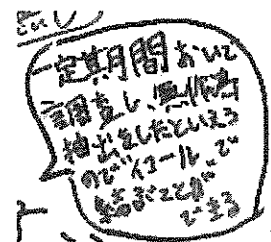 一定期間おいて
調査し、無作為
抽出をしたといえる
ので"イコール"で
結ぶことが
できる